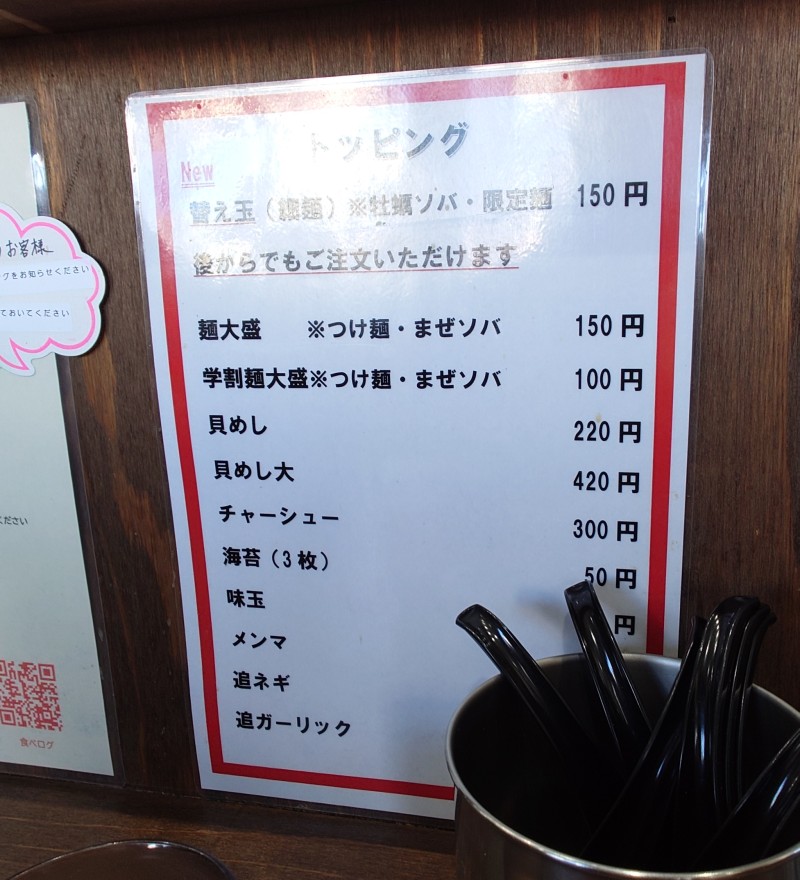 トッピング
New
替え玉（細麺）※牡蠣ソバ・限定麺 150円
後からでもご注文いただけます
麺大盛 ※つけ麺・まぜソバ 150円
学割麺大盛※つけ麺・まぜソバ 100円
貝めし 220円
貝めし大 420円
チャーシュー 300円
海苔（3枚） 50円
味玉 円
メンマ
追ネギ
追ガーリック
お客様
グをお知らせください
ておいてください
ください
食べログ